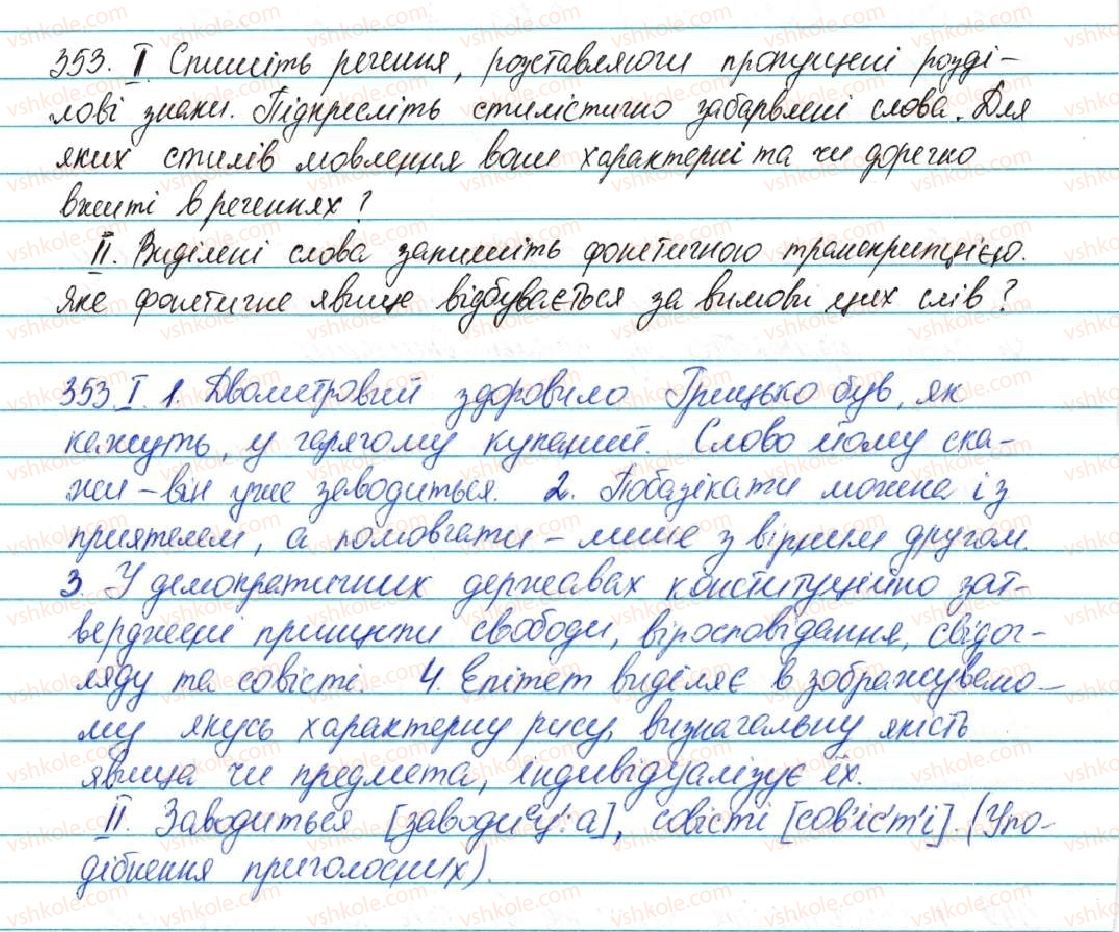 353. І. Спишіть речення, розставляючи пропущені розді-
лові знаки. Підкресліть стилістично забарвлені слова. Для
яких стилів мовлення вони характерні та чи доречно
вжиті в реченнях?
ІІ. Виділені слова запишіть фонетичною транскрипцією.
Яке фонетичне явище відбувається за вимови цих слів?
353. І. 1. Двометровий здоровило Грицько був, як
кажуть, у гарячому купаний. Слово йому ска-
жи – він уже заводиться. 2. Побазікати можна із
приятелем, а помовчати – лише з вірним другом.
3. У демократичних державах конституційно зат-
верджені принципи свободи, віросповідання, світог-
ляду та совісті. 4. Епітет виділяє в зображувано-
му якусь характерну рису, визначальну якість
явища чи предмета, індивідуалізує їх.
ІІ. Заводиться [заводиец':а], совісті [сов'іс'т'і]. (Упо-
дібнення приголосних).
vshkole.com